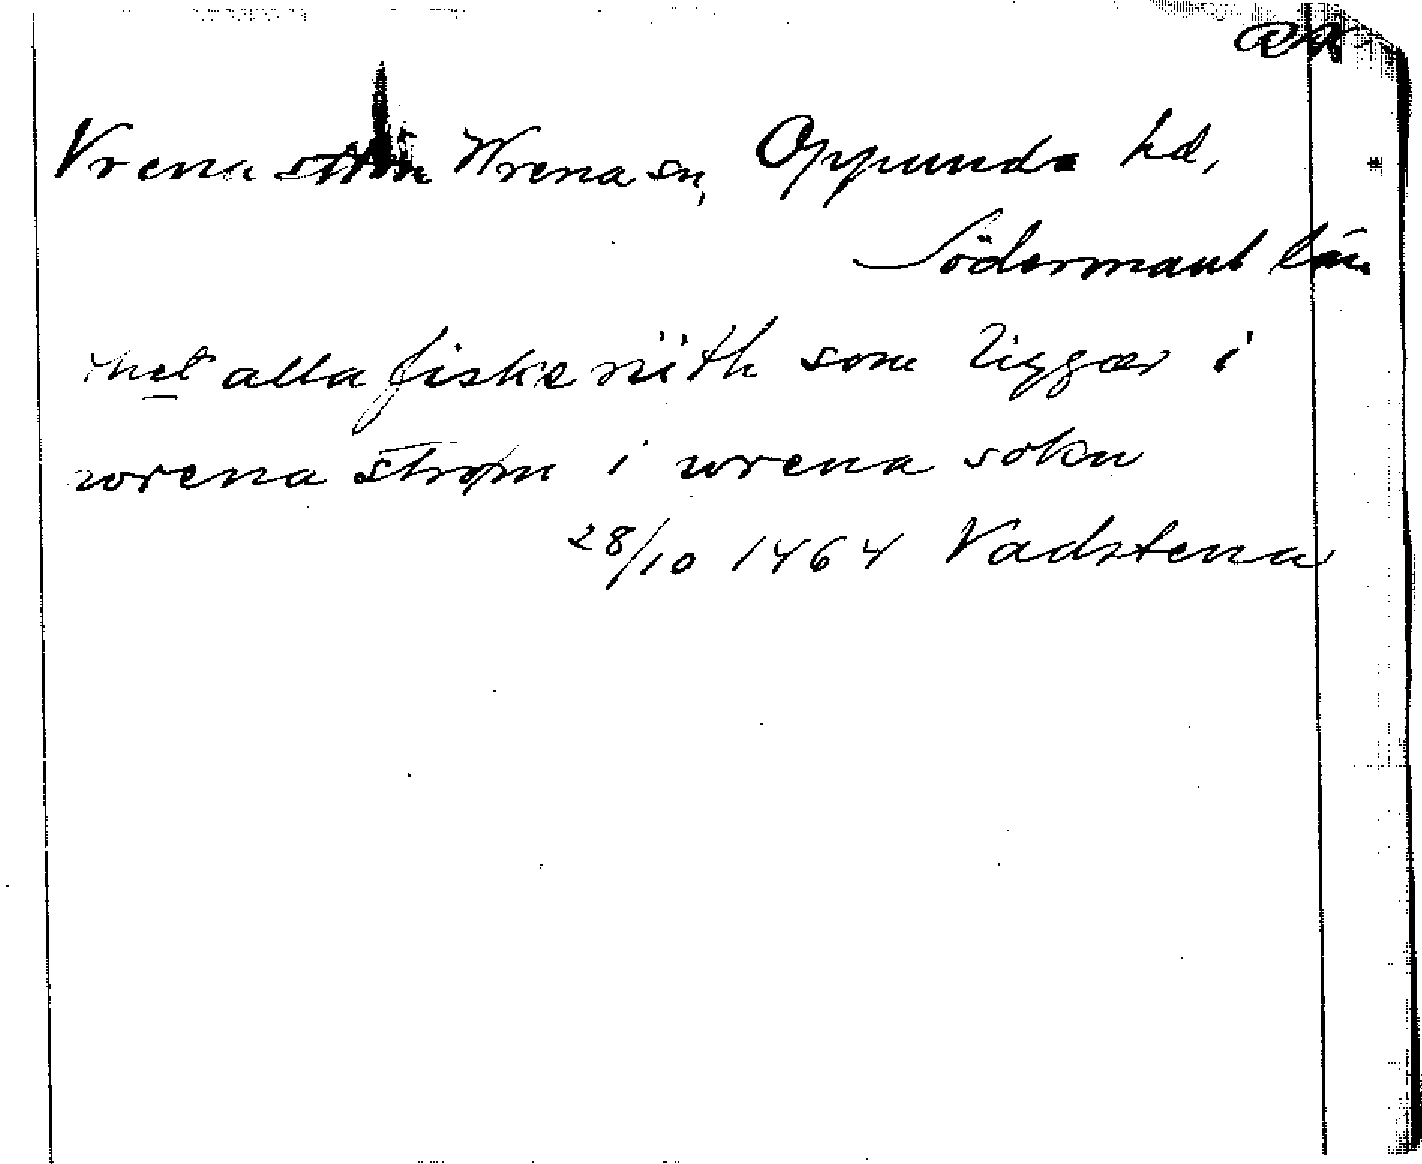 Vrena ström Wrena sn, Oppunda hd,
Södermanl län
met alla fiskeriith som liggær i
wrena strøm i wrena sokn
28/10 1464 Vadstena